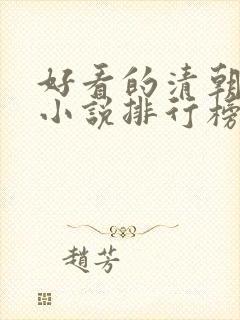 好看的清朝
小说排行榜
趙芳